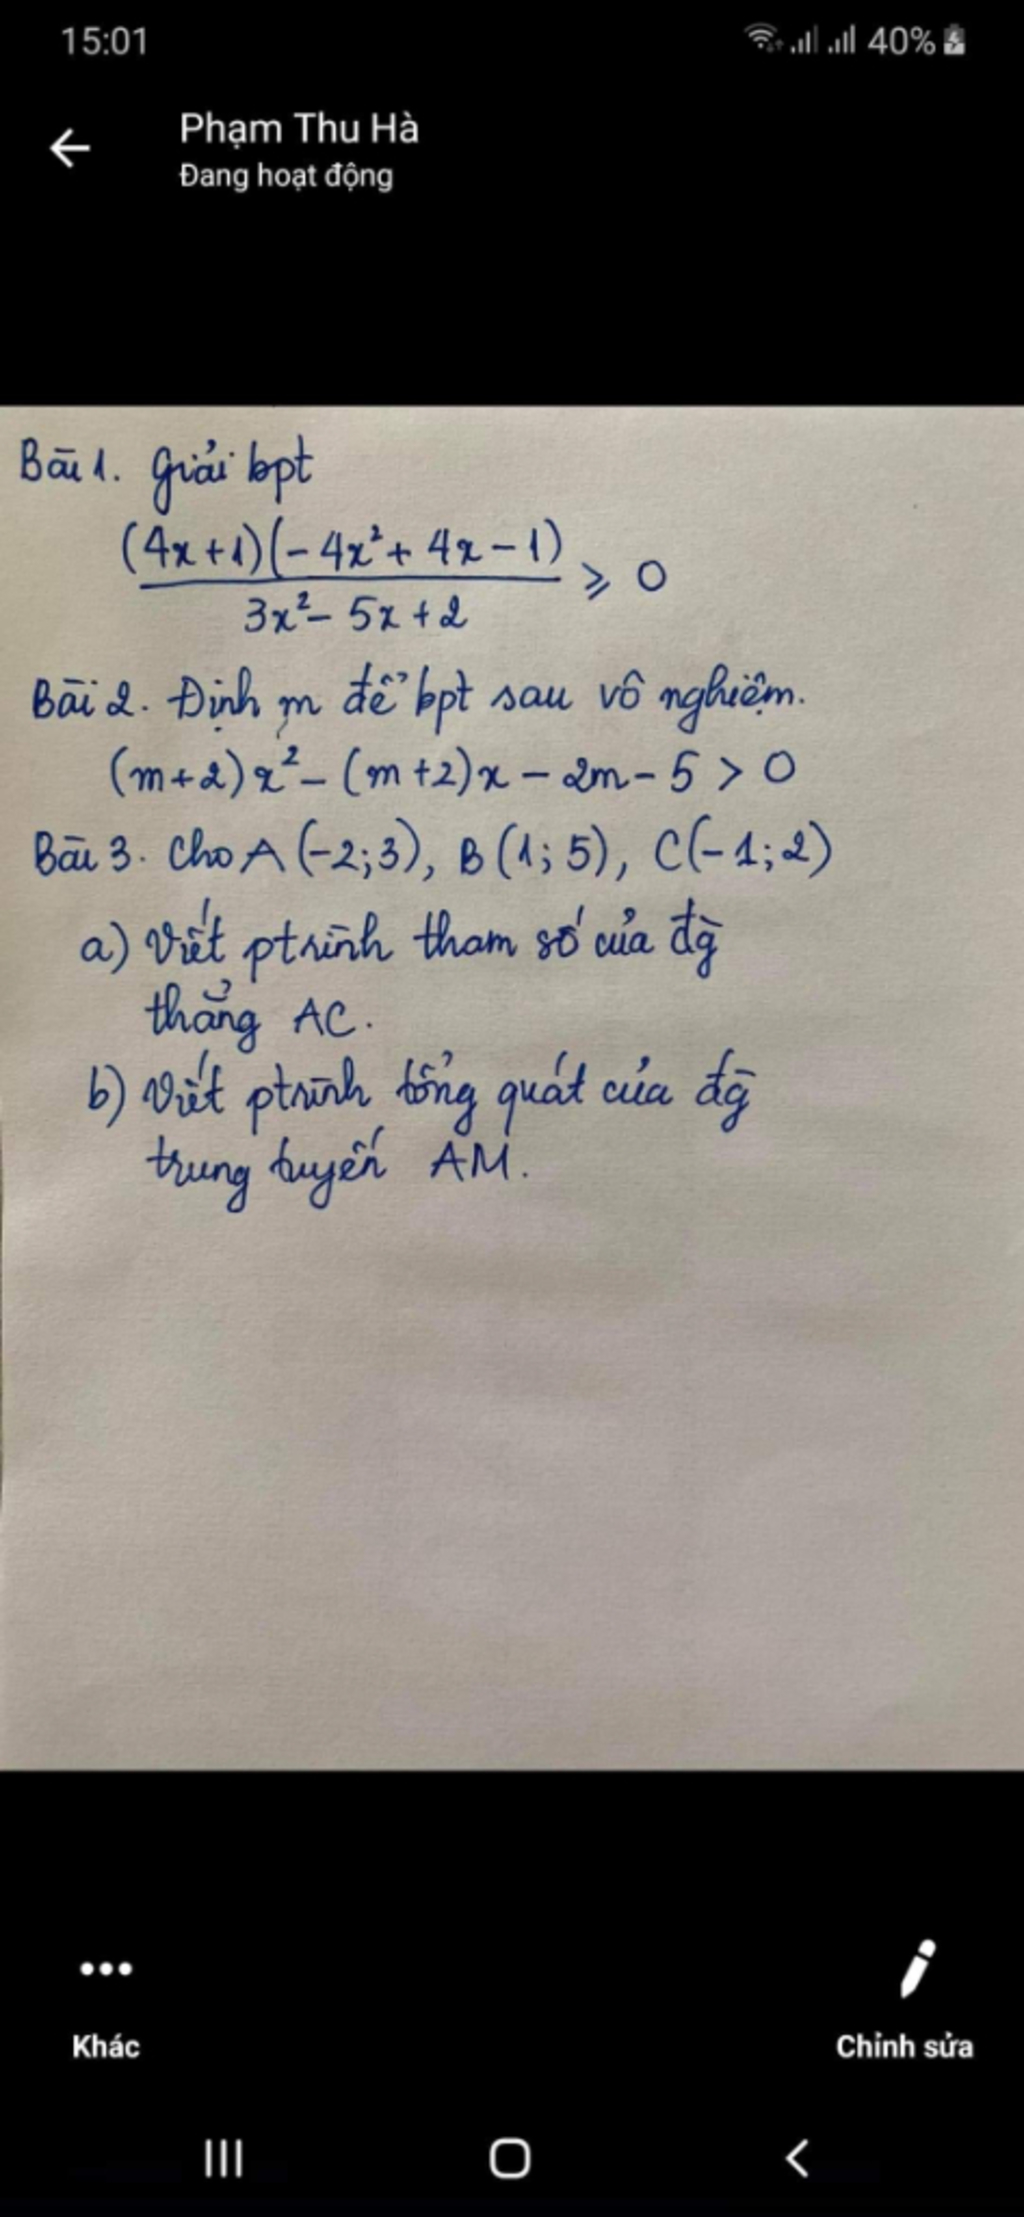 15:01
40%
Phạm Thu Hà
Đang hoạt động
Bài 1. Giải bpt
(4x+1)(-4x²+4x-1)
⩾ 0
3x²-5x+2
Bài 2. Định m để bpt sau vô nghiệm.
(m+2)x²-(m+2)x-2m-5>0
Bài 3. Cho A(-2;3), B(1;5), C(-1;2)
a) Viết ptrình tham số của đg̀
thẳng AC.
b) Viết ptrình tổng quát của đg̀
trung tuyến AM.
Khác
Chỉnh sửa